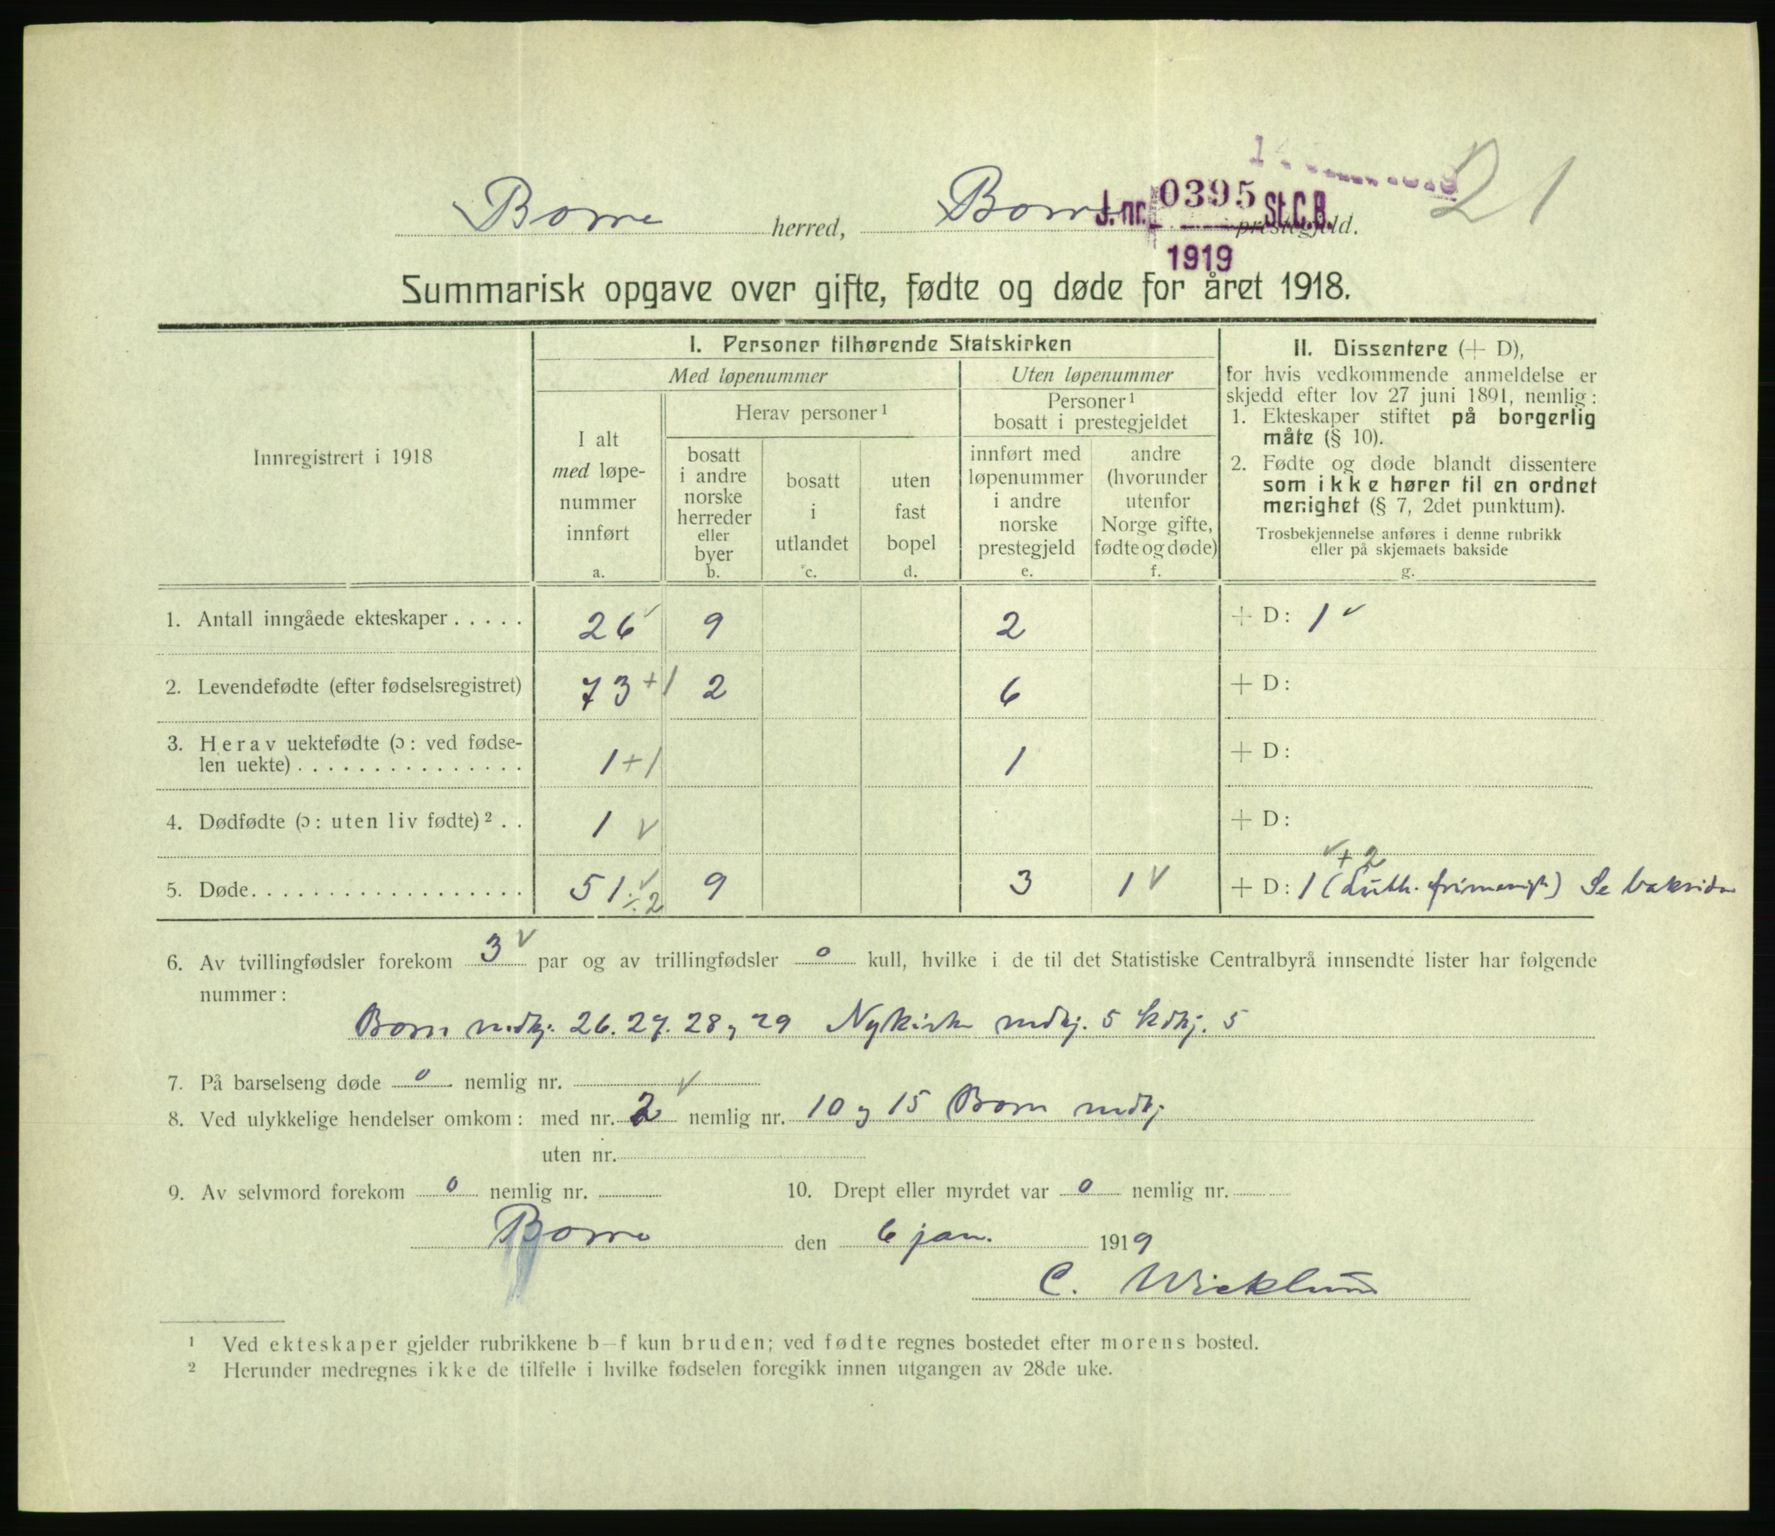 21
Borre herred, Borre prestegjeld.
J.nr. 0395 St.C.B.
1919
Summarisk opgave over gifte, fødte og døde for året 1918.
Innregistrert i 1918
I. Personer tilhørende Statskirken
Med løpenummer
Uten løpenummer
I alt
med løpe-
nummer
innført
a.
Herav personer ¹
bosatt
i andre
norske
herreder
eller
byer
b.
bosatt
i
utlandet
c.
uten
fast
bopel
d.
Personer ¹
bosatt i prestegjeldet
innført med
løpenummer
i andre
norske
prestegjeld
e.
andre
(hvorunder
utenfor
Norge gifte,
fødte og døde)
f.
II. Dissentere (+ D),
for hvis vedkommende anmeldelse er
skjedd efter lov 27 juni 1891, nemlig:
1. Ekteskaper stiftet på borgerlig
måte (§ 10).
2. Fødte og døde blandt dissentere
som ikke hører til en ordnet
menighet (§ 7, 2det punktum).
Trosbekjennelse anføres i denne rubrikk
eller på skjemaets bakside
g.
1. Antall inngåede ekteskaper . . . . . 26 ✓ 9 2 + D: 1 ✓
2. Levendefødte (efter fødselsregistret) 73 +1 2 6 + D:
3. Herav uektefødte (ɔ: ved fødse-
len uekte) . . . . . . . . . . . . . . . 1 +1 1 + D:
4. Dødfødte (ɔ: uten liv fødte) ² . . 1 ✓ + D:
✓ + 2
5. Døde. . . . . . . . . . . . . . . . . . 51 ✓ ÷2 9 3 1 ✓ + D: 1 (Luth. frimenigh.) Se baksiden
6. Av tvillingfødsler forekom 3 ✓ par og av trillingfødsler 0 kull, hvilke i de til det Statistiske Centralbyrå innsendte lister har følgende
nummer:
Borre mdkj. 26. 27. 28 og 29 Nykirke mdkj. 5 kdkj. 5
7. På barselseng døde 0 nemlig nr. ✓
8. Ved ulykkelige hendelser omkom: med nr. 2 nemlig nr. 10 og 15 Borre mdkj
uten nr.
9. Av selvmord forekom 0 nemlig nr. 10. Drept eller myrdet var 0 nemlig nr.
Borre den 6 jan. 1919
C. Wicklund
¹ Ved ekteskaper gjelder rubrikkene b–f kun bruden; ved fødte regnes bostedet efter morens bosted.
² Herunder medregnes ikke de tilfelle i hvilke fødselen foregikk innen utgangen av 28de uke.